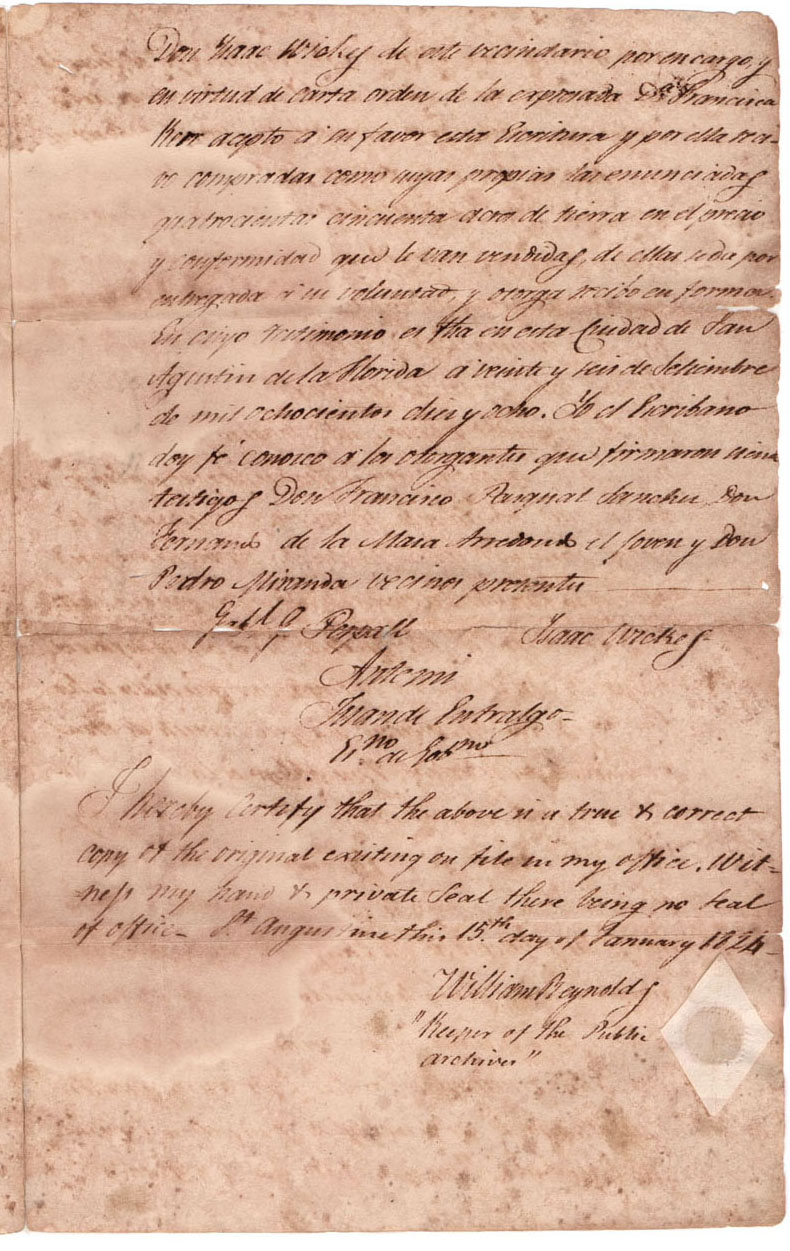 Don Isaac Wickes de este vecindario por encargo, y
en virtud de carta orden de la expresada Da. Francisca
Kerr acepto á su favor esta Escritura y por ella reci-
ve compradas como suyas propias las enunciadas
quatrocientas cincuenta acres de tierra en el precio
y conformidad que le van vendidas, de ellas se da por
entregada á su voluntad, y otorga recibo en forma.
En cuyo testimonio es fha en esta Ciudad de San
Agustin de la Florida á veinte y seis de Setiembre
de mil ochocientos diez y ocho. Yo el Escribano
doy fé conosco á los otorgantes que firmaron siendo
testigos Don Francisco Pasqual Sanchez Don
Fernando de la Maza Arredondo el Joven y Don
Pedro Miranda vecinos presentes
Gabl. G Perpall Isaac Wickes
Ante mi
Juan de Entralgo
Esno de Gobno
I hereby Certify that the above is a true & correct
copy of the original existing on file in my office. Wit-
ness my hand & private Seal there being no seal
of office - St. Augustine this 15th day of January 1824-
William Reynolds
"Keeper of the Public
archives"